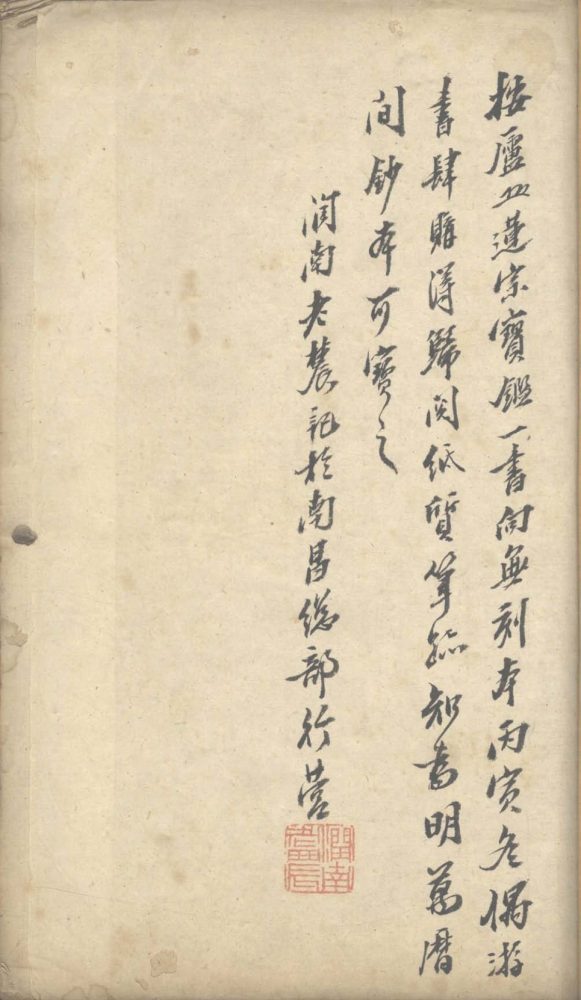 按廬山蓮宗寶鑑一書向無刻本丙寅冬偶游
書肆購得歸閱紙質筆跡知爲明萬曆
間鈔本可寶之
潤南老農記於南昌總部行營
潤南